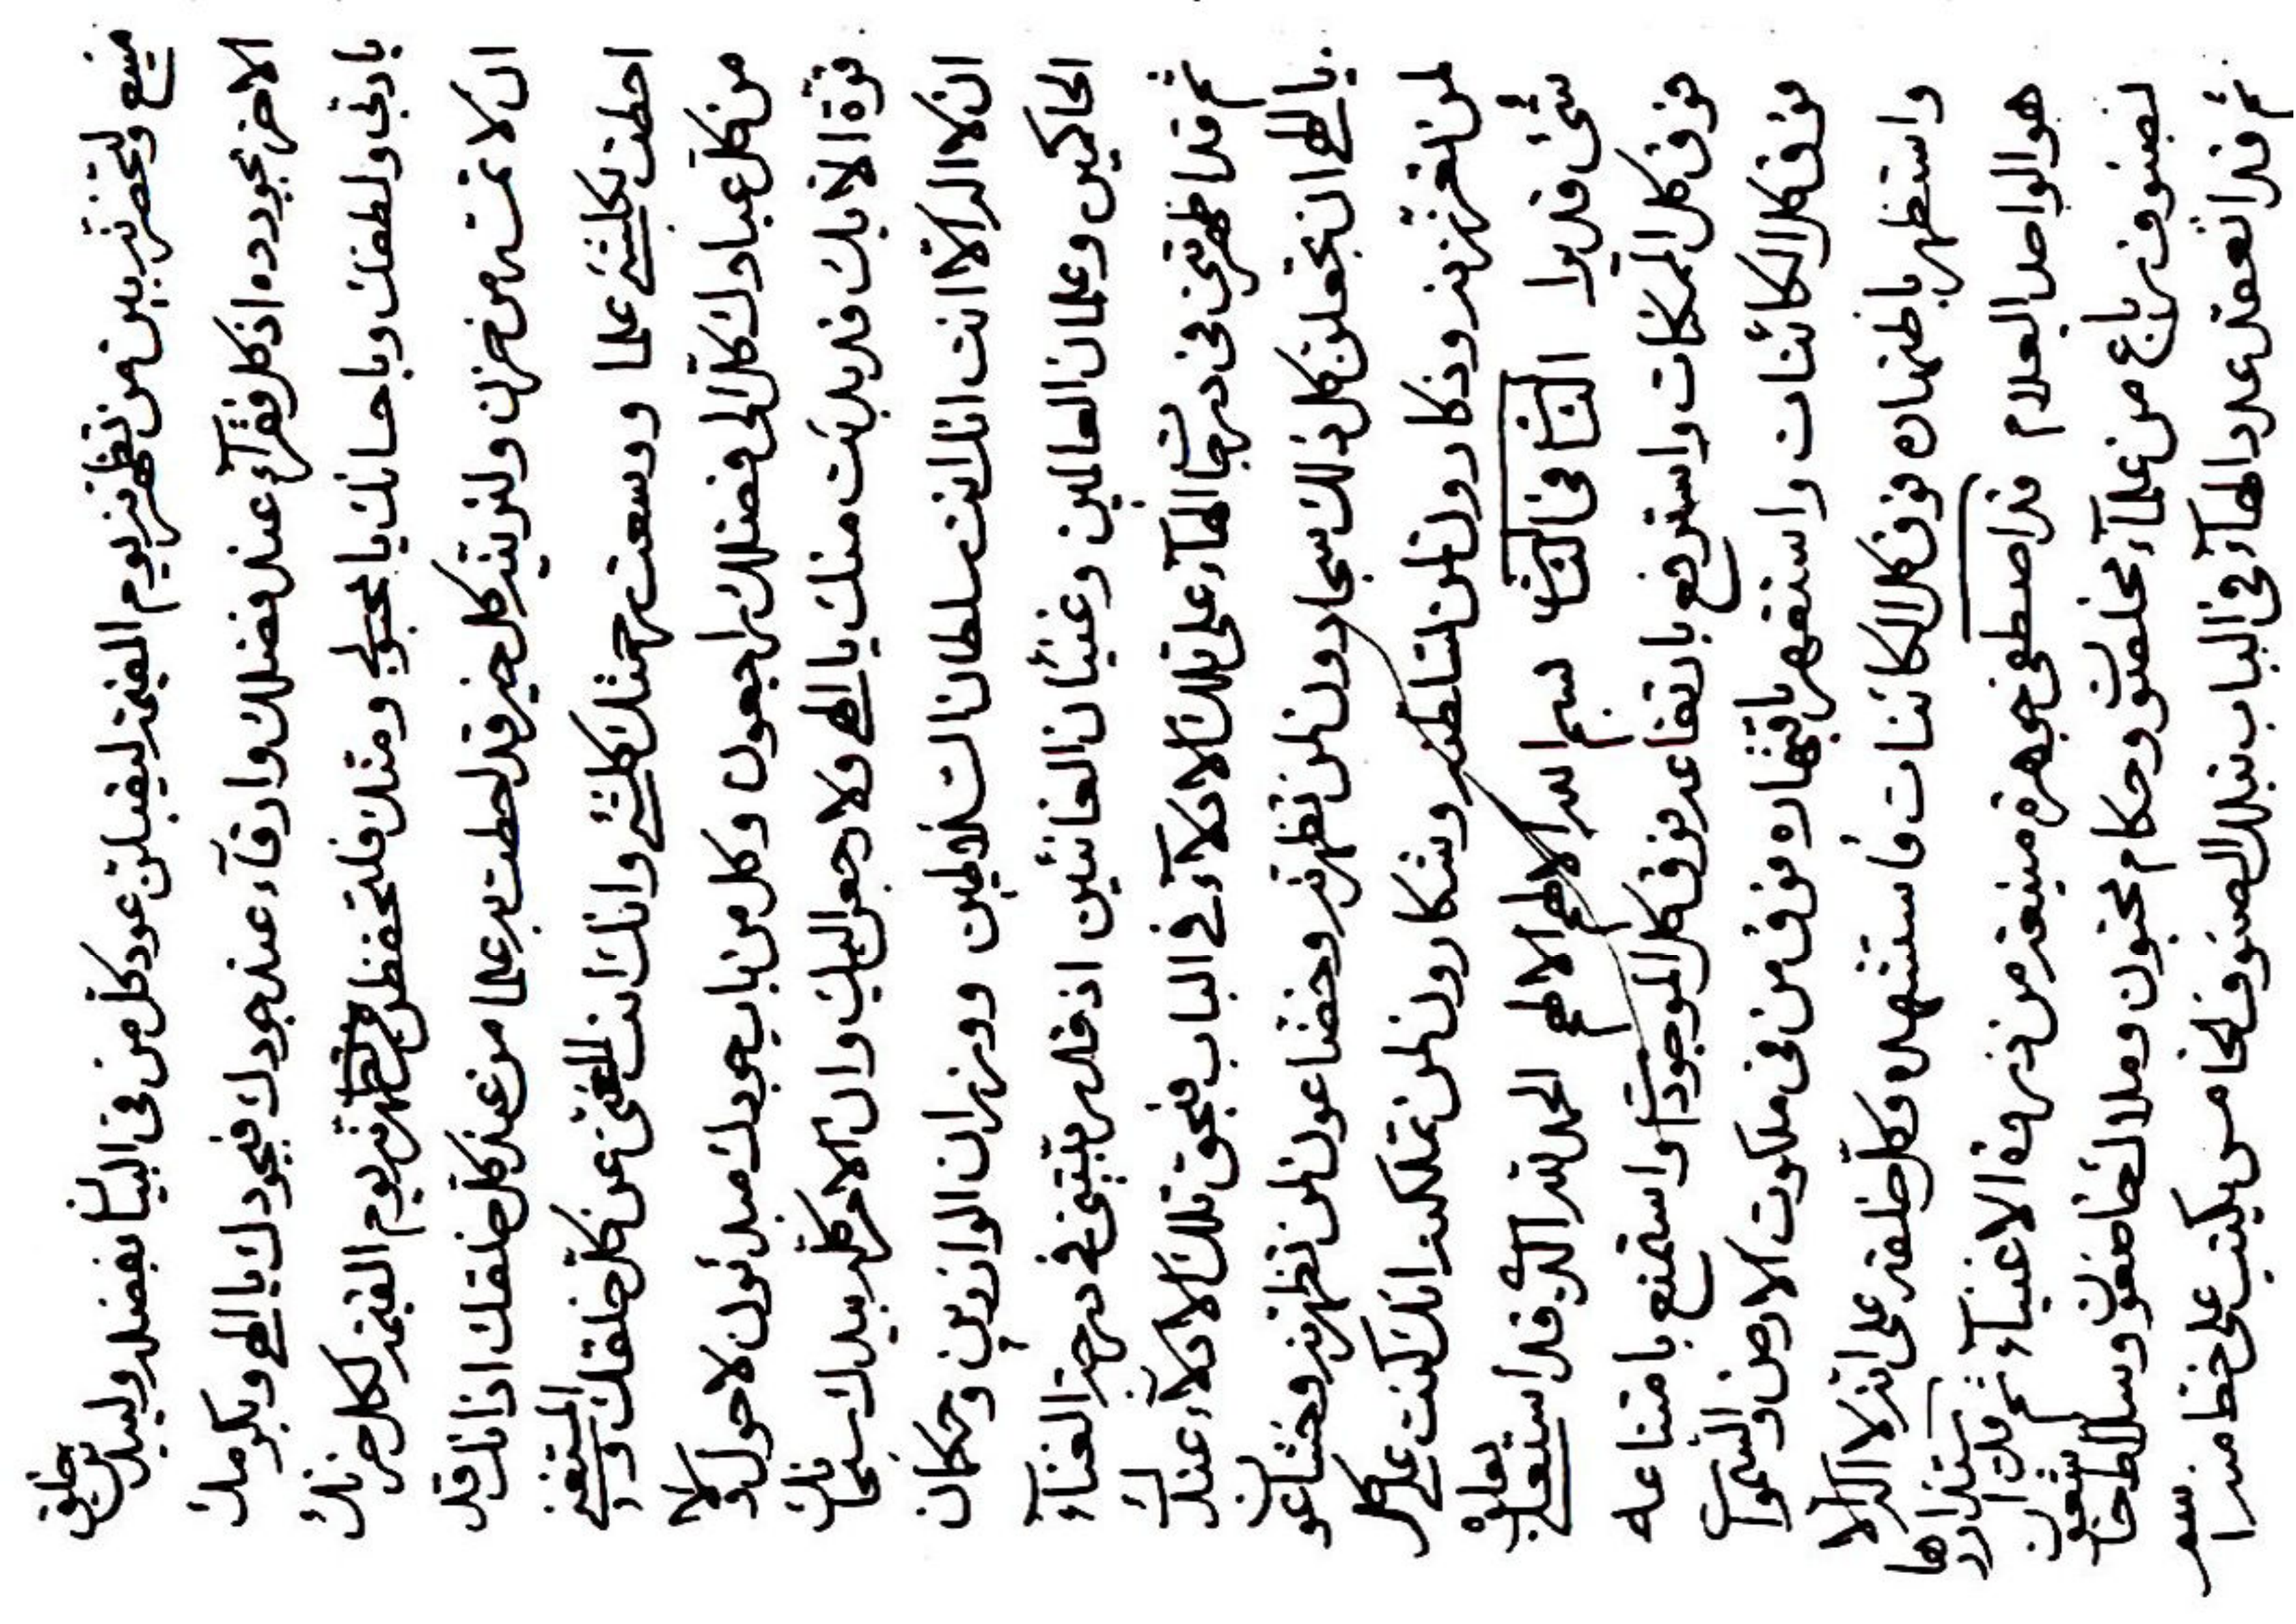 منيع ولتحضرنه بين من تظهرنه يوم القيمة ليقبلن عود كل من في البيان بفضله وليبدلن خلق
الاخر بجوده اذ كل فقرآء عند فضلك وارقآء عند جودك فبجودك يا الهي وبكرمك
يا ربي ولطفك وباحسانك يا محبوبي ومنك فلتحفظن من تظهرنه يوم القيمة لكل حزنك
ان لا تمسه من حزن ولتربنه كل خير قد احطت به علما من عند كل خلقك اذ انك قد
احطت بكلشئ علما ووسعت رحمتك كلشئ وانك انت الغني عن كل خلقك والمستغني
من كل عبادك كل الى فضلك راجعون وكل من باب جودك مبدئون لا حول ولا
قوة الا بك قد بدئت منك يا الهي ولا رجعن اليك وان الامر كله بيدك سبحانك
ان لا اله الا انت انك انت سلطان السلاطين ووزران الوازرين وحكان
الحاكمين وعلمان العالمين وغنيان الغانئين اذ قلد بتني في درجة الغنآء
ثم قد اظهرتني في درجات الهآء على تلك الادلآء في الباب فبحق تلك الادلآء عندك
يا الهي ان تجعلن كل ذلك سجادون لمن تظهرنه وخضاعون لمن تظهرنه وخشاعون
لمن تعززنه وذكارون لمن تسلطنه وشكارون لمن تملكنه انك كنت على كل
شئ قديرا الثاني في الثاني بسم الله الالهم الالهم الحمد لله الذي قد استعلى بعلوه
فوق كل الممكنات واسترفع بارتفاعه فوق كل الموجودات واستمنع بامتناعه
فوق كل الكائنات واستقهر باقتهاره فوق من في ملكوت الارض والسموات
واستظهر باظتهاره فوق كل الكائنات فاستشهده وكل خلقه على انه لا اله الا
هو الواحد العلام قد اصطفى جوهرة منيعة من ذروة الاغنيآء ثم قد ان ستذارها
بصنوف رباع من علمآء مخلصون وحكام مخبتون وملاك خاضعون وسلاط خاشعون
ثم قد انعقد عدد الهآء في الباب بتلك الصنوف الخامس يكتب على خط منه اسم